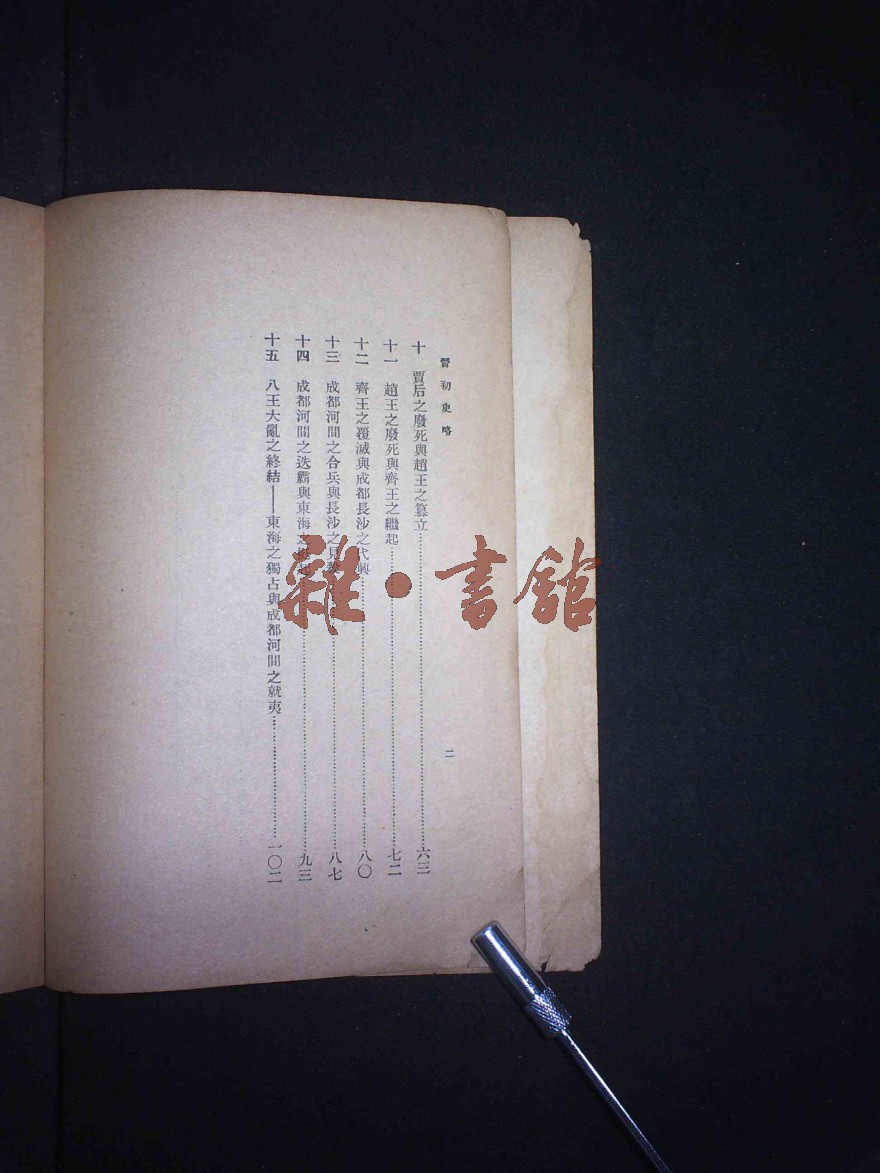 晉初史略
二
十 賈后之廢死與趙王之篡立……六三
十一 趙王之廢死與齊王之繼起……七二
十二 齊王之覆滅與成都長沙之代興……八〇
十三 成都河間之合兵與長沙之見……八七
十四 成都河間之迭霸與東海之……九三
十五 八王大亂之終結——東海之獨占與成都河間之就夷……一〇二
雜·書館